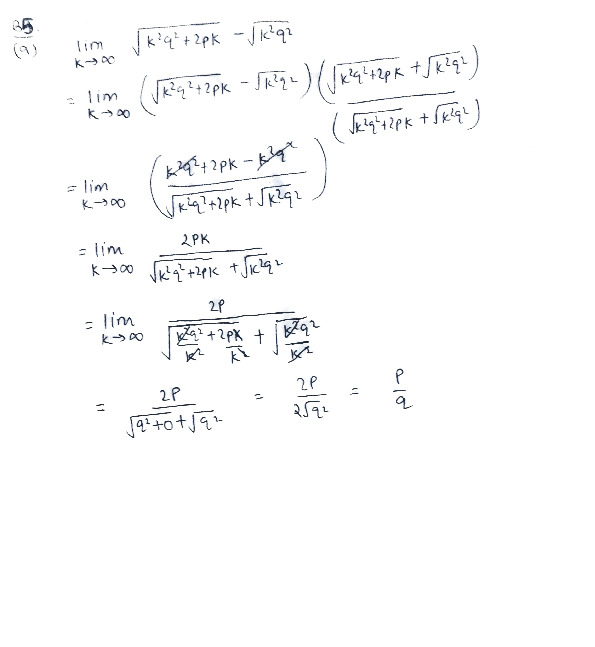 5.
(a) lim k→∞ √(k²q²+2pk) − √(k²q²)
= lim k→∞ (√(k²q²+2pk) − √(k²q²)) (√(k²q²+2pk) + √(k²q²)) / (√(k²q²+2pk) + √(k²q²))
= lim k→∞ ((k²q²+2pk − k²q²) / (√(k²q²+2pk) + √(k²q²)))
= lim k→∞ 2pk / (√(k²q²+2pk) + √(k²q²))
= lim k→∞ 2p / (√(k²q²/k² + 2pk/k²) + √(k²q²/k²))
= 2p / (√(q²+0) + √(q²)) = 2p / (2√(q²)) = p/q